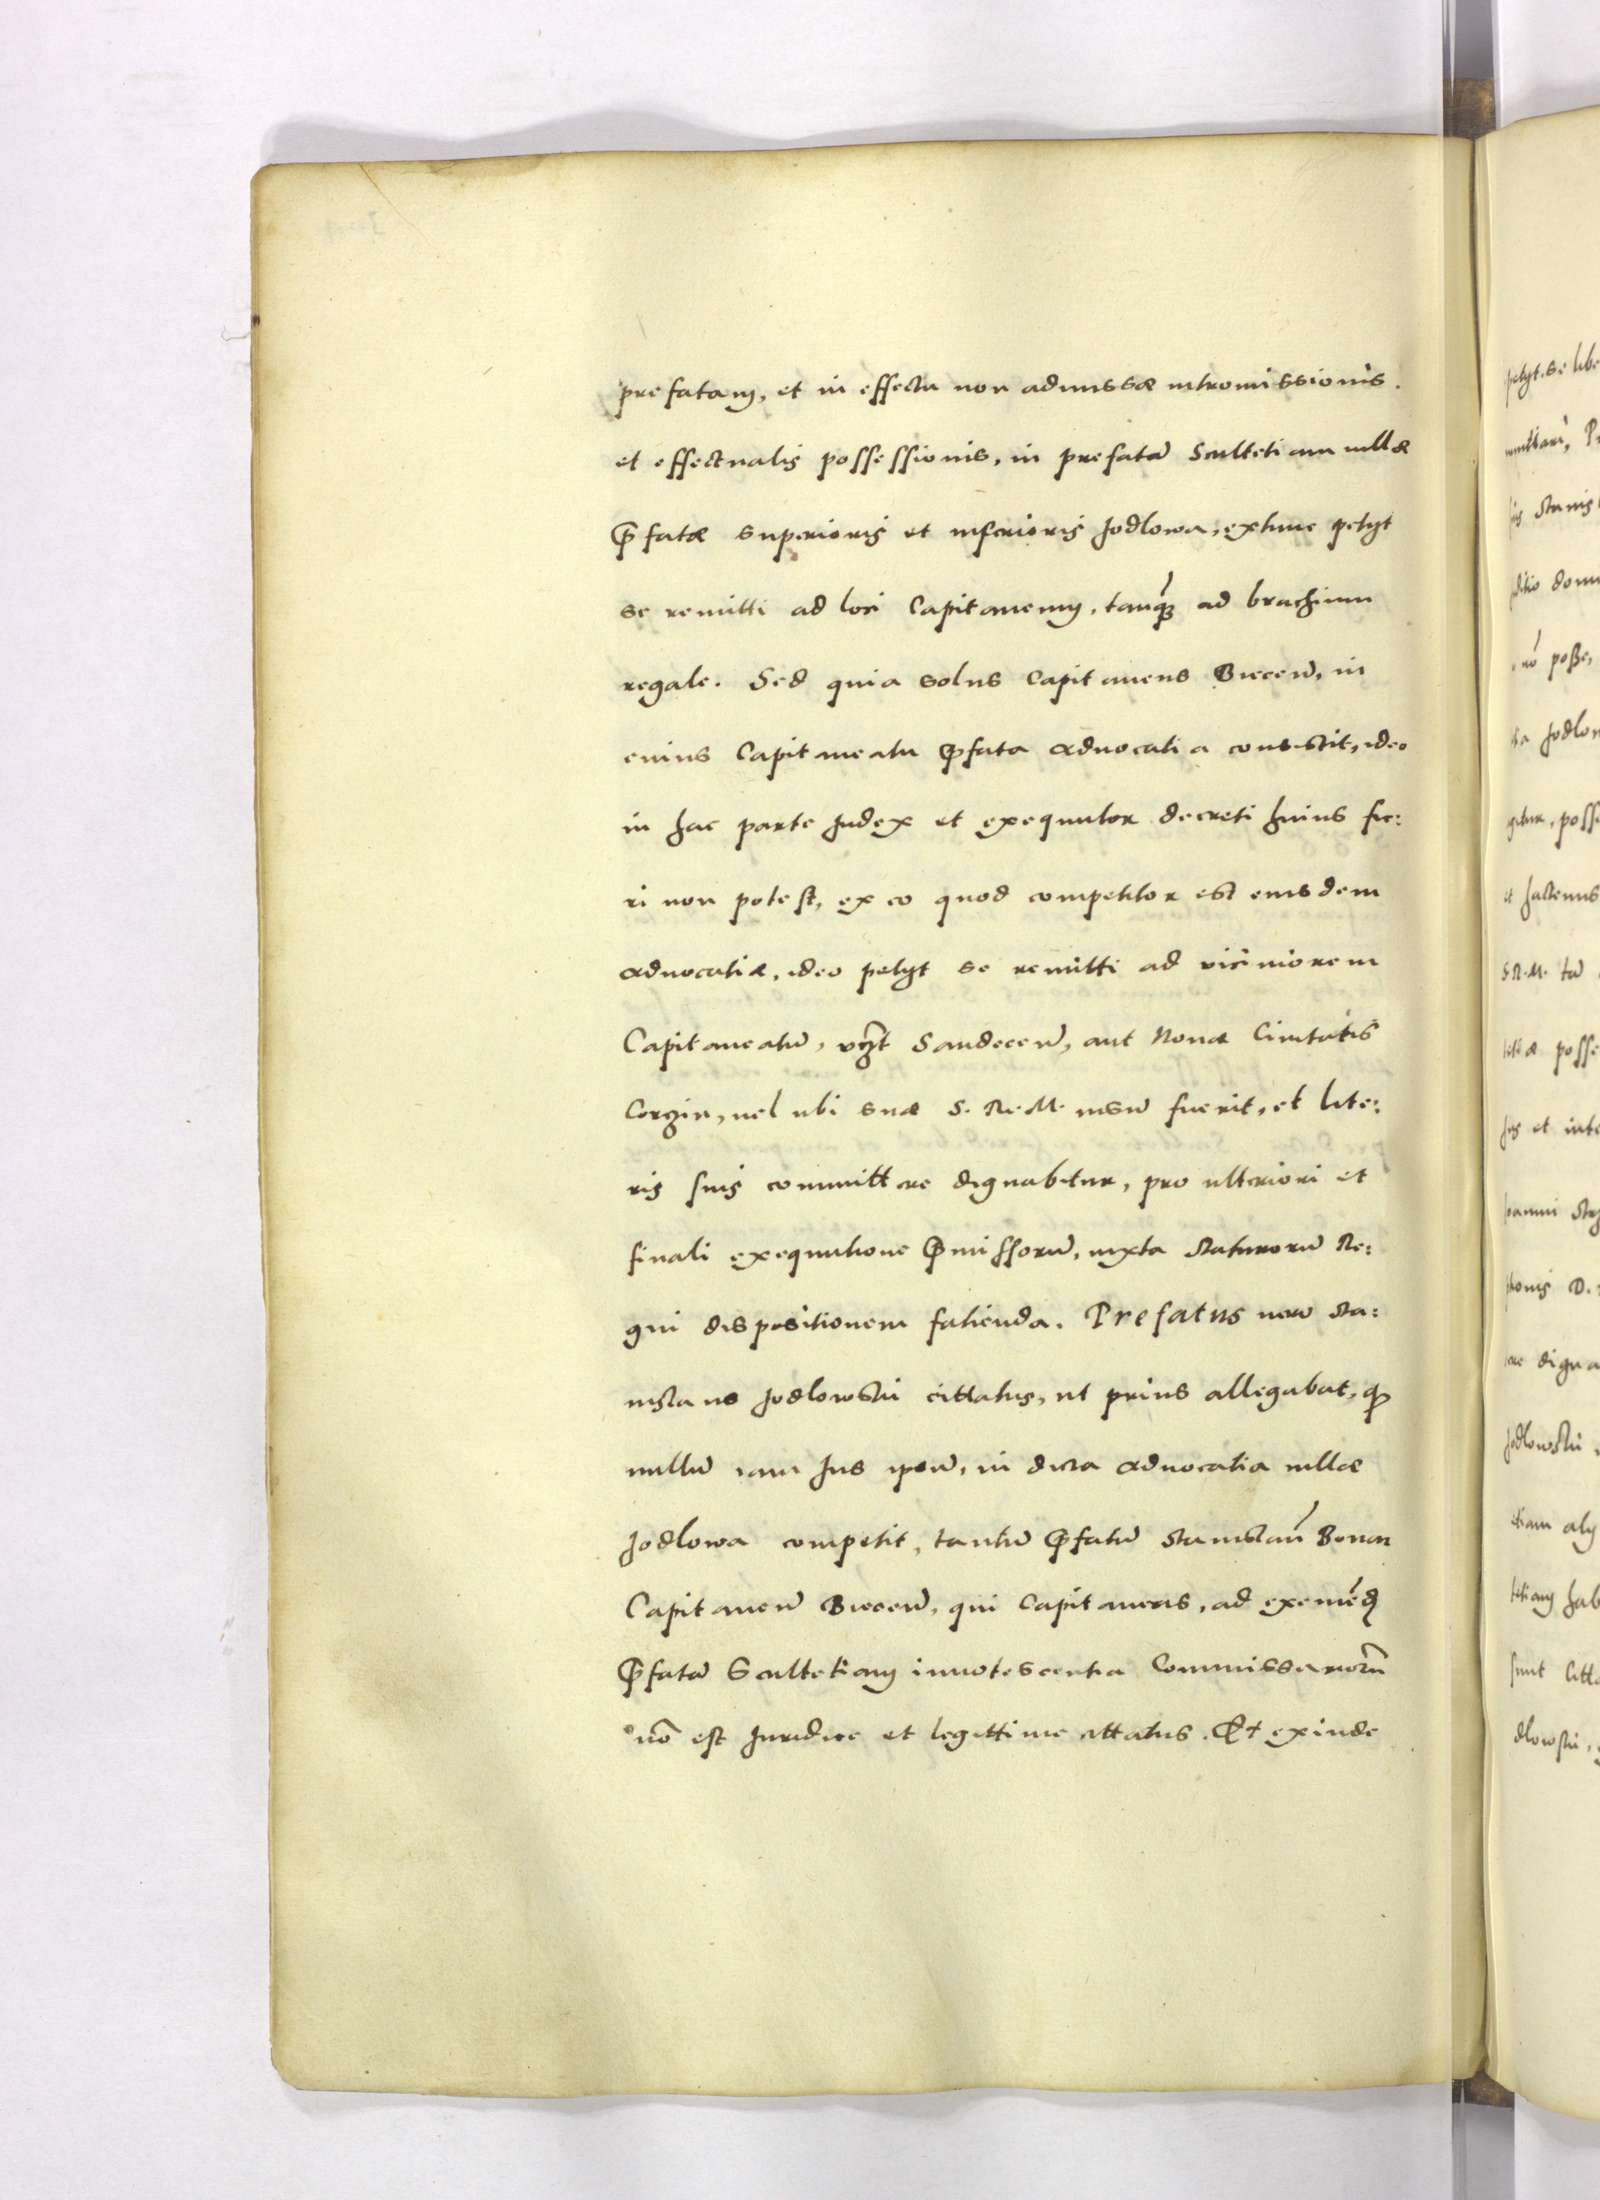 prefatam, et in effectu non admissæ intromissionis.
et effectualis possessionis, in prefatā Scultetiam uillæ
p̄fatæ superioris et inferioris Jodlowa, exhinc petyt
se remitti ad loci Capitaneum, tanq̃ ad brachium
regale. Sed quia solus Capitaneus Biecen̄, in
cuius Capitaneatu p̄fata aduocatia consistit, ideo
in hac parte Judex et exequutor decreti huius fie:
ri non potest, ex eo quod competitor est eiusdem
aduocatiæ, ideo petyt se remitti ad viciniorem
Capitaneatū, Sandecen̄, aut Nouæ Ciuitatis
Corzin, uel ubi suæ S. R. M. uisū fuerit, et lite:
ris suis committere dignabitur, pro ulteriori et
finali exequutione p̄missorū, iuxta Statutorū Re:
gni dispositionem fatienda. Prefatus uero Sta:
nislaus Jodlowski cittatus, ut prius allegabat, qꝫ
nullū iam Jus ipsū, in dicta aduocatia uillæ
Jodlowa competit, tantū p̄fatū Stanislaū Bonar
Capitaneū Biecen̄, qui Capitaneus, ad exemēd
p̄fatā Scultetiam innotescentia Commissariorū
nō est Juridice et legittime cittatus. Et exinde
petyt se libe
Jodlow
poße,
et hactenus
S. R. M.
et inte
Jodlowski
etiam aly
sunt
dlowski,